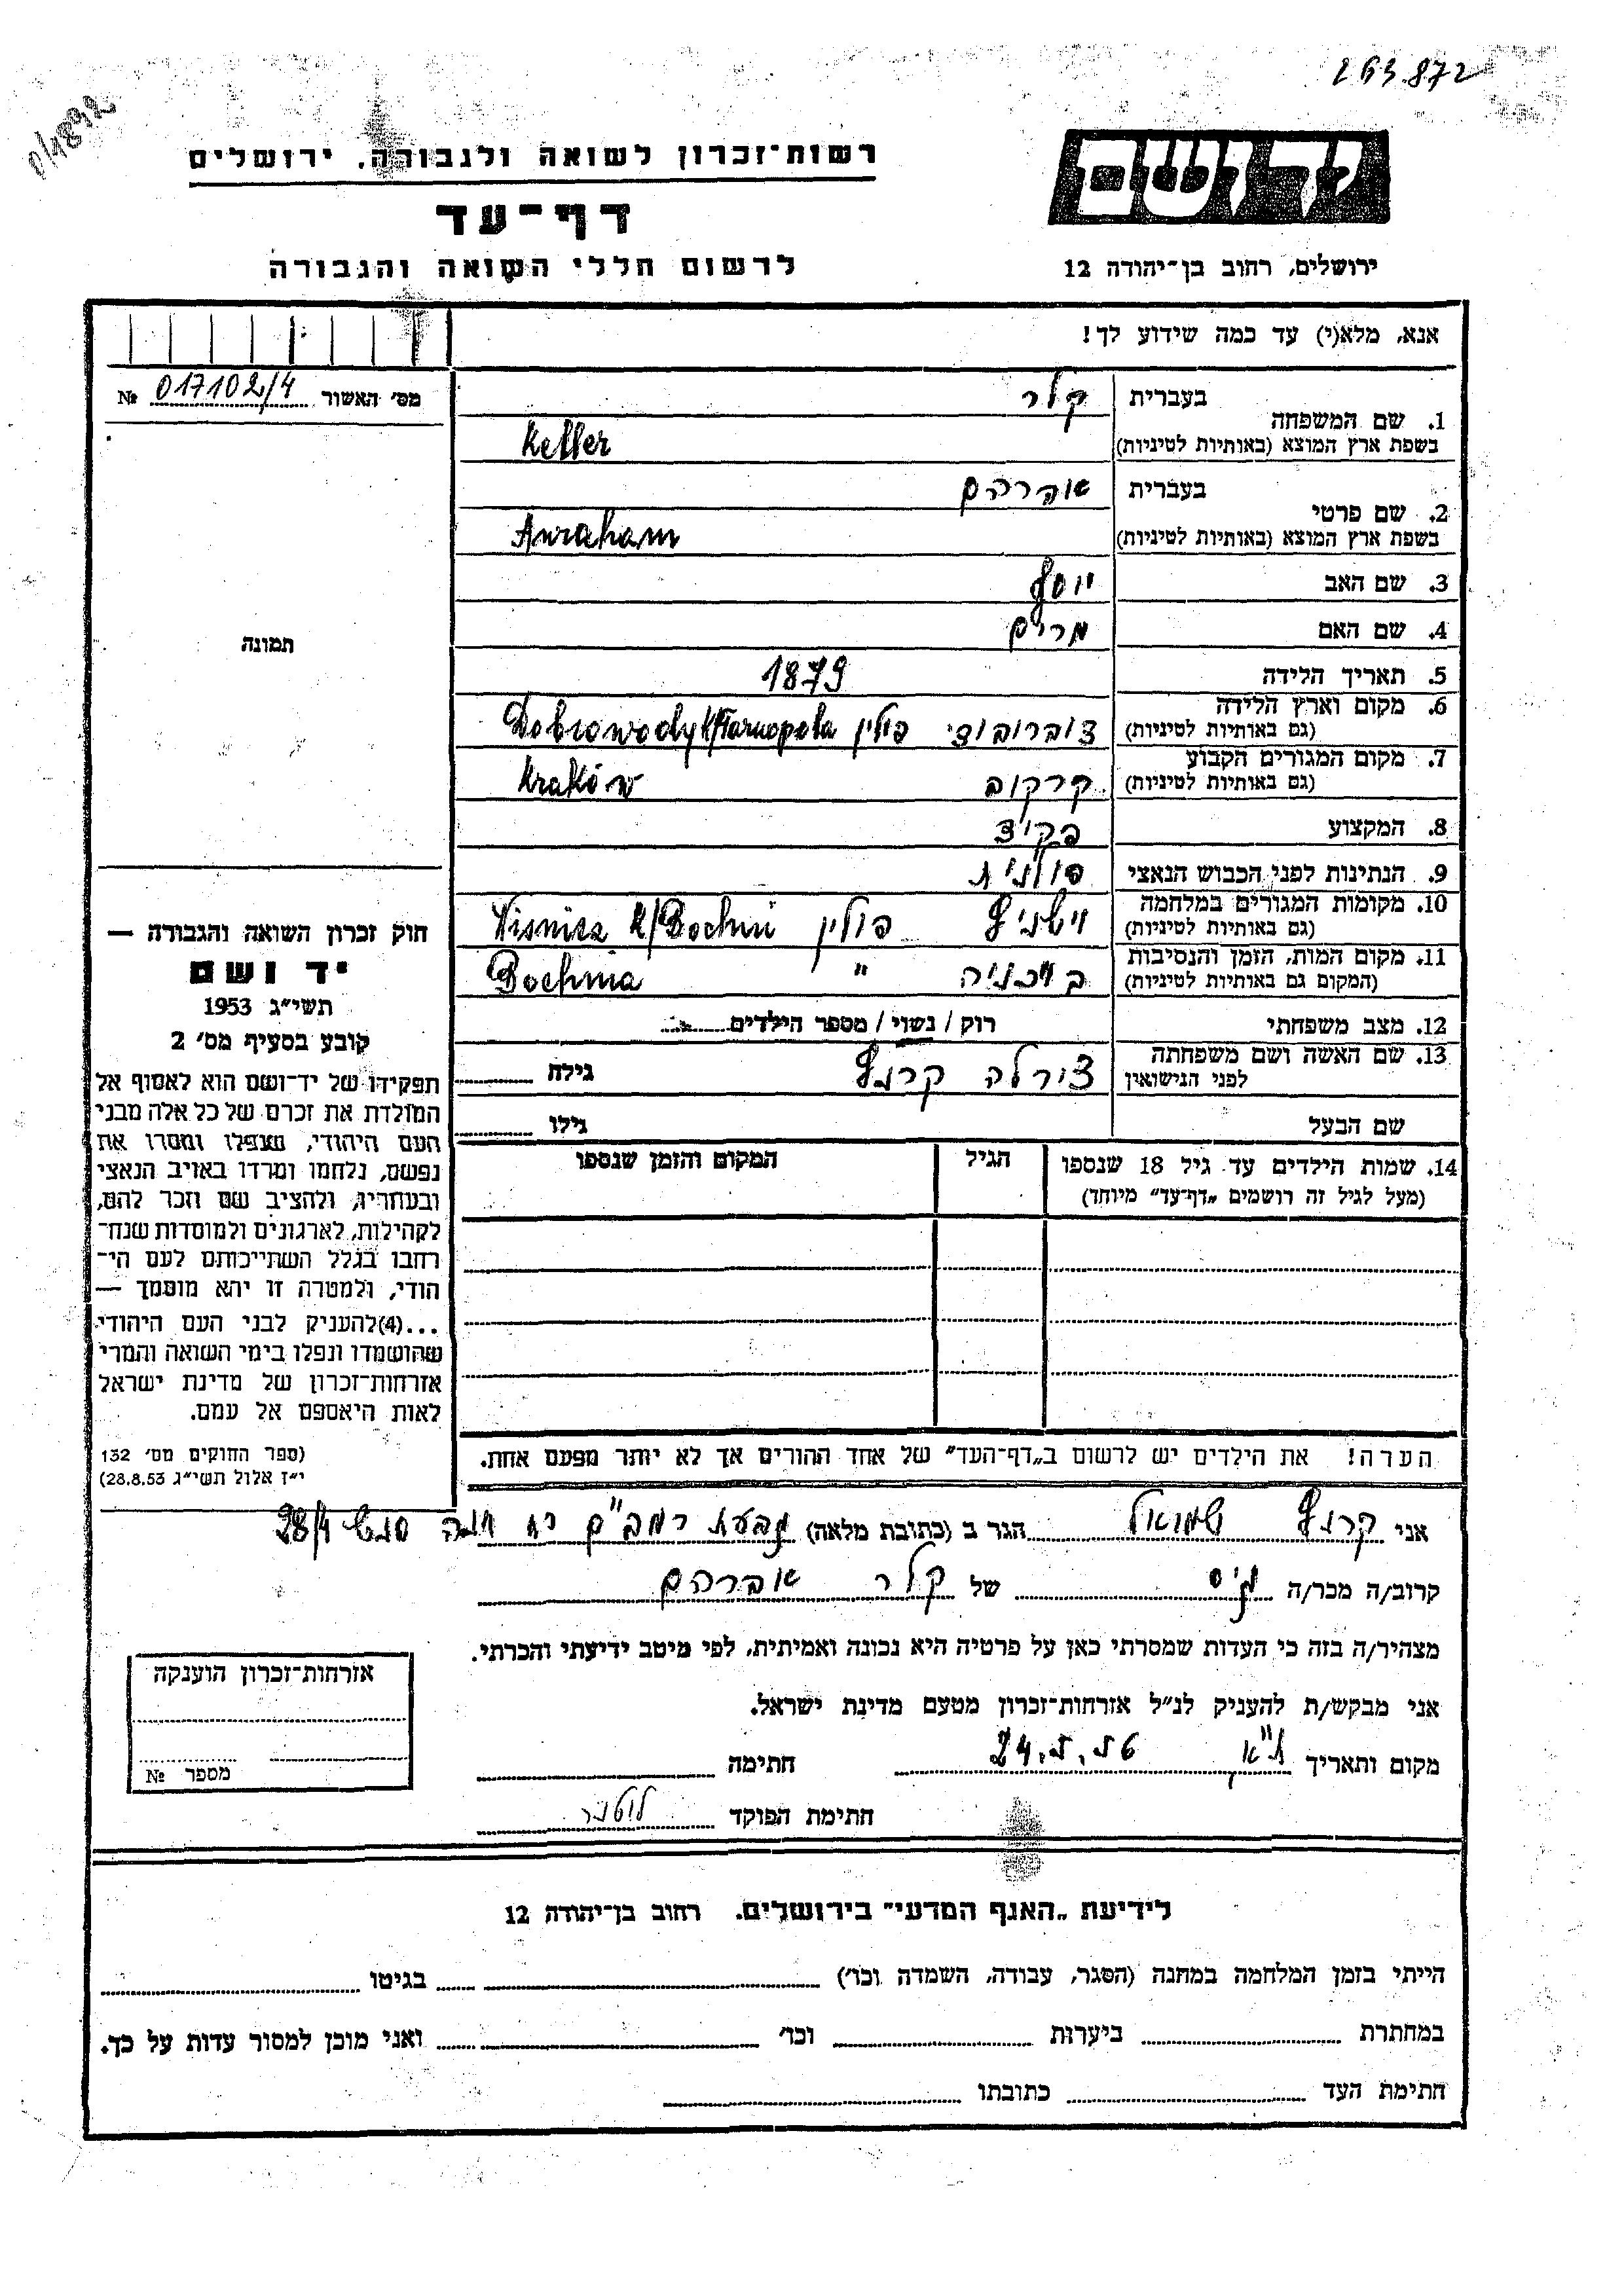 263.872
רשות־זכרון לשואה ולגבורה, ירושלים
דף־עד
לרשום חללי השואה והגבורה
יד ושם
ירושלים, רחוב בן־יהודה 12
אנא, מלא(י) עד כמה שידוע לך!
מס׳ האשור 017102/4 №
1. שם המשפחה
בעברית קלר
בשפת ארץ המוצא (באותיות לטיניות) Keller
2. שם פרטי
בעברית אברהם
בשפת ארץ המוצא (באותיות לטיניות) Avraham
3. שם האב יוסף
4. שם האם מרים
5. תאריך הלידה 1879
6. מקום וארץ הלידה
(גם באותיות לטיניות) דוברובודי פולין Dobrowody k/Tarnopola
7. מקום המגורים הקבוע
(גם באותיות לטיניות) קרקוב Kraków
8. המקצוע פקיד
9. הנתינות לפני הכבוש הנאצי פולנית
10. מקומות המגורים במלחמה
(גם באותיות לטיניות) וישניץ פולין Wisnicz k/Bochni
11. מקום המות, הזמן והנסיבות
(המקום גם באותיות לטיניות) בוכניה " Bochnia
12. מצב משפחתי רוק / נשוי / מספר הילדים
13. שם האשה ושם משפחתה
לפני הנישואין גילה
שם הבעל גילו
14. שמות הילדים עד גיל 18 שנספו
(מעל לגיל זה רושמים „דף־עד״ מיוחד)
הגיל
המקום והזמן שנספו
הערה! את הילדים יש לרשום ב„דף־העד״ של אחד ההורים אך לא יותר מפעם אחת.
תמונה
חוק זכרון השואה והגבורה —
יד ושם
תשי״ג 1953
קובע בסעיף מס׳ 2
תפקידו של יד־ושם הוא לאסוף אל
המולדת את זכרם של כל אלה מבני
העם היהודי, שנפלו ומסרו את
נפשם, נלחמו ומרדו באויב הנאצי
ובעוזריו, ולהציב שם וזכר להם,
לקהילות, לארגונים ולמוסדות שנח־
רבו בגלל השתייכותם לעם הי־
הודי, ולמטרה זו יהא מוסמך —
...(4)להעניק לבני העם היהודי
שהושמדו ונפלו בימי השואה והמרי
אזרחות־זכרון של מדינת ישראל
לאות היאספם אל עמם.
(ספר החוקים מס׳ 132
י״ז אלול תשי״ג 28.8.53)
אני שמואל הגר ב (כתובת מלאה) גבעת רמב"ם 28/4
קרוב/ה מכר/ה גיס של קלר אברהם
מצהיר/ה בזה כי העדות שמסרתי כאן על פרטיה היא נכונה ואמיתית, לפי מיטב ידיעתי והכרתי.
אני מבקש/ת להעניק לנ״ל אזרחות־זכרון מטעם מדינת ישראל.
מקום ותאריך ת"א חתימה
חתימת הפוקד
אזרחות־זכרון הוענקה
מספר №
לידיעת „האגף המדעי״ בירושלים. רחוב בן־יהודה 12
הייתי בזמן המלחמה במחנה (הסגר, עבודה, השמדה וכו׳) בגיטו
במחתרת ביערות וכו׳ ואני מוכן למסור עדות על כך.
חתימת העד כתובתו